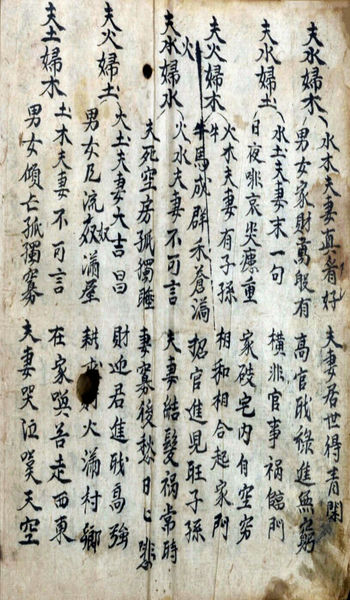 夫水婦木 水木夫妻直着好 夫妻居世得青閑
男女家財勇敢有 高官戝祿進無窮
夫水婦土 水土夫妻末一句 橫非官事禍臨門
日夜啼哀災瘴重 家破宅內自空穷
夫火婦木 火木夫妻有子孫 相和相合起家門
牛馬成群禾蒼滿 招官進見旺子孫
夫水婦火 火水夫妻不可言 夫妻結髮禍常時
夫死空房孤獨睡 妻寡後愁日匕悲
夫火婦土 火土夫妻大吉昌 財迎君進戝高強
男女足流奴滿屋 耕 火滿村鄉
夫土婦木 土木夫妻不可言 在家與苦走西東
男女傾亡孤獨寡 夫妻哭泣嘆天空